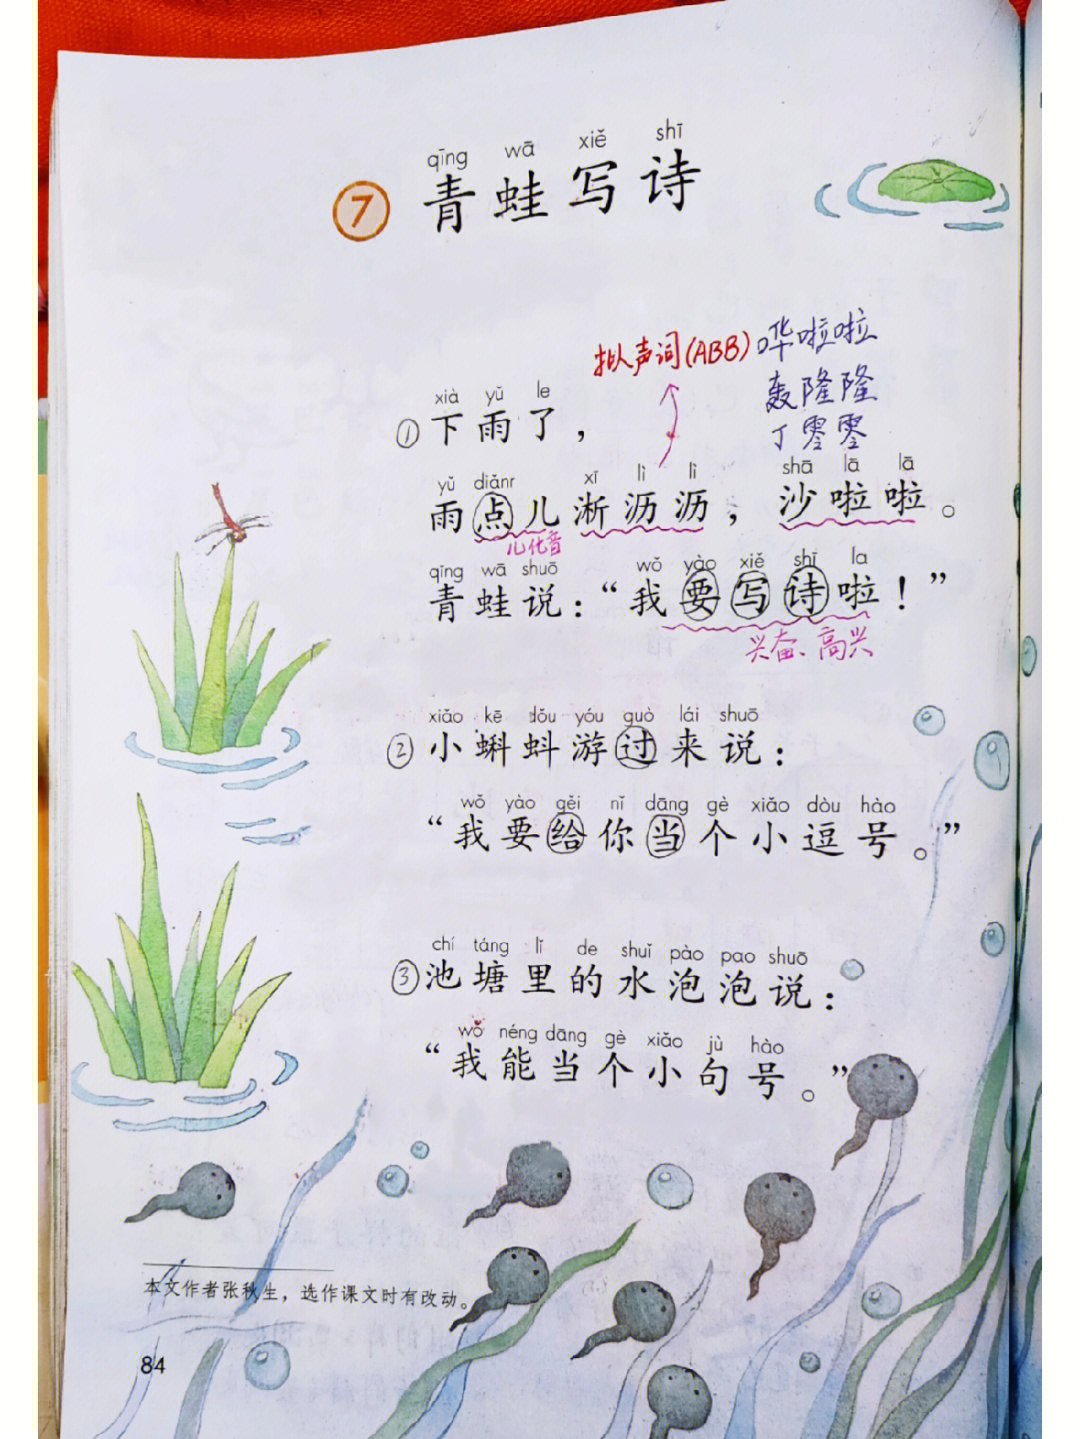 qīng wā xiě shī
7 青蛙写诗
拟声词(ABB) 哗啦啦
轰隆隆
丁零零
xià yǔ le
①下雨了，
yǔ diǎnr xī lì lì shā lā lā
雨点儿淅沥沥，沙啦啦。
儿化音
qīng wā shuō wǒ yào xiě shī la
青蛙说：“我要写诗啦！”
兴奋、高兴
xiǎo kē dǒu yóu guò lái shuō
②小蝌蚪游过来说：
wǒ yào gěi nǐ dāng gè xiǎo dòu hào
“我要给你当个小逗号。”
chí táng lǐ de shuǐ pào pao shuō
③池塘里的水泡泡说：
wǒ néng dāng gè xiǎo jù hào
“我能当个小句号。”
本文作者张秋生，选作课文时有改动。
84